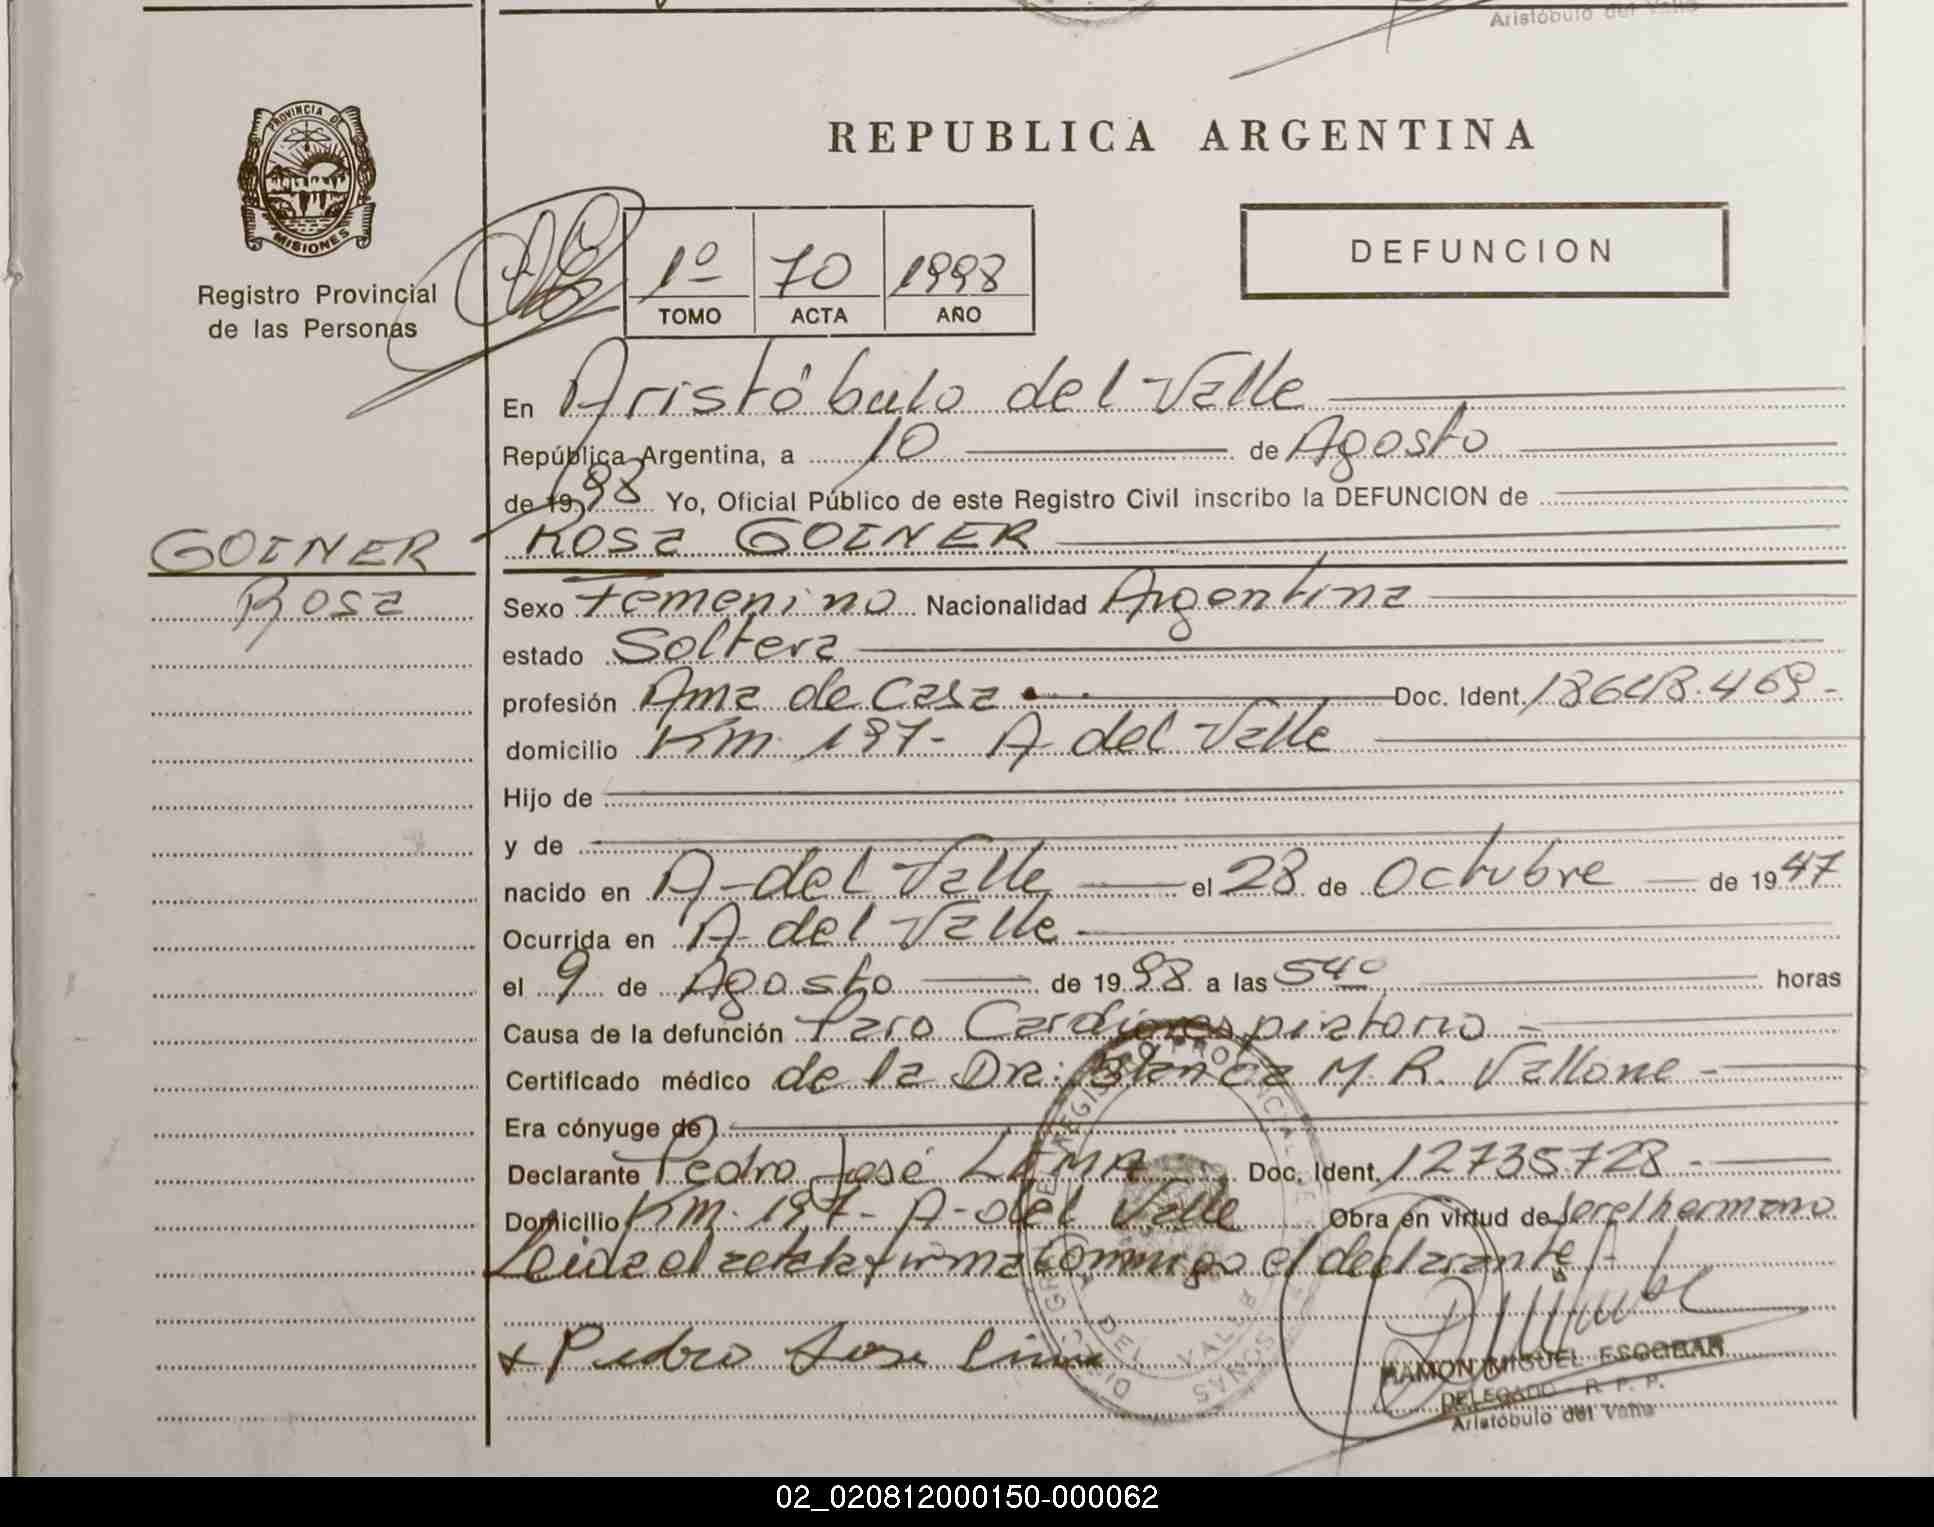 Aristóbulo del Valle
PROVINCIA DE
MISIONES
Registro Provincial
de las Personas
REPUBLICA ARGENTINA
DEFUNCION
1º 70 1998
TOMO ACTA AÑO
En Aristóbulo del Valle
República Argentina, a 10 de Agosto
de 19 98 Yo, Oficial Público de este Registro Civil inscribo la DEFUNCION de
GOINER
Rosa
Rosa GOINER
Sexo Femenino Nacionalidad Argentina
estado Soltera
profesión Ama de Casa Doc. Ident. 18648.469-
domicilio Km. 197- A. del Valle
Hijo de
y de
nacido en A-del Valle el 28 de Octubre de 19 47
Ocurrida en A-del Valle
el 9 de Agosto de 19 98 a las 540 horas
Causa de la defunción Paro Cardiorespiratorio-
Certificado médico de la Dra: Blanca M. R. Vallone-
Era cónyuge de
Declarante Pedro José LEMA Doc. Ident. 12735728-
Domicilio Km. 197- A-del Valle Obra en virtud de ser el hermano
Leida el acta la firma conmigo el declarante
+ Pedro Jose
RAMON MIGUEL ESCOBAR
DELEGADO - R. P. P.
Aristóbulo del Valle
02_020812000150-000062